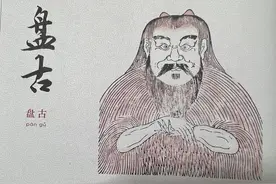 盘古
盘古
pán gǔ